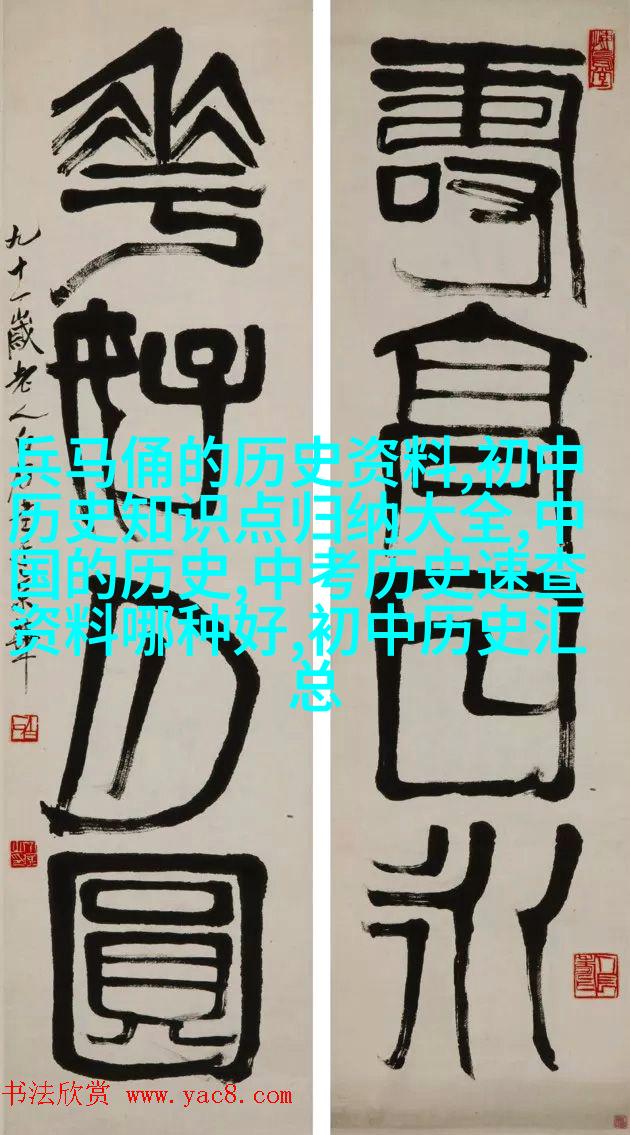 壽高日永
花好月圓
九十一歲老人
兵马俑的历史资料,初中
历史知识点归纳大全,中
国的历史,中考历史速查
资料哪种好,初中历史汇
总
书法欣赏 www.yac8.com